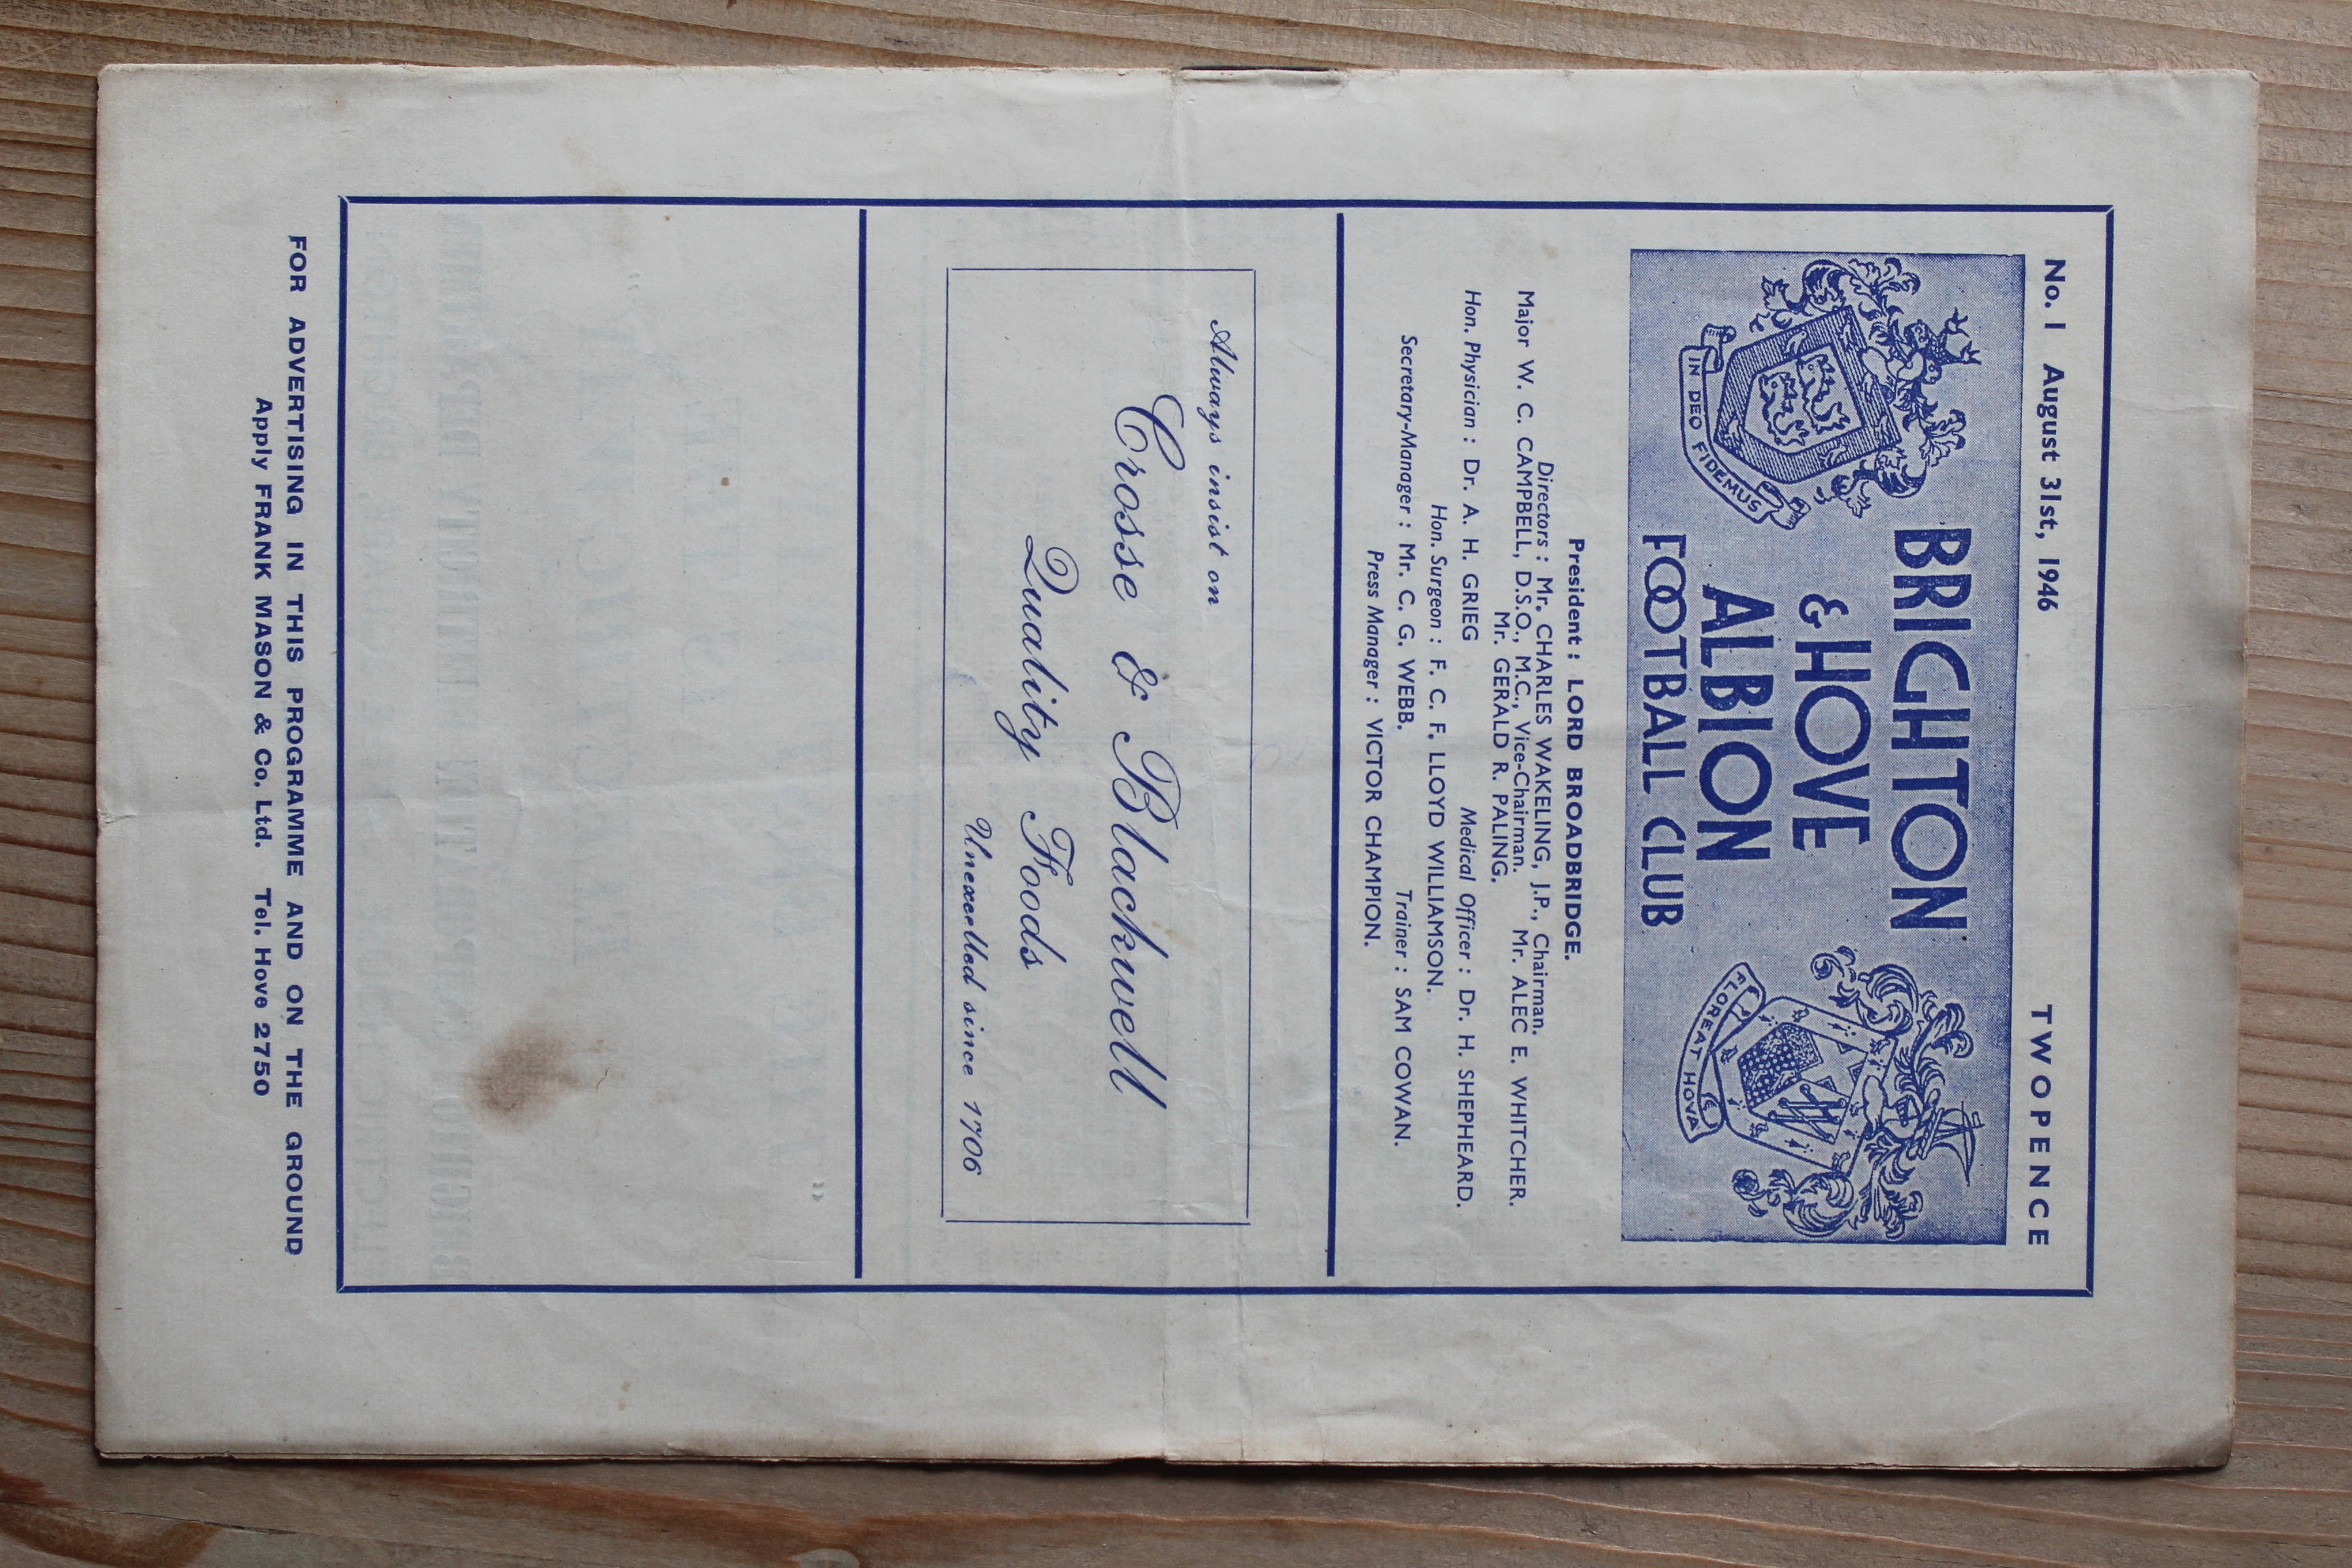 No. 1 August 31st, 1946 TWOPENCE
BRIGHTON
& HOVE
ALBION
FOOTBALL CLUB
IN DEO FIDEMUS
FLOREAT HOVA
President : LORD BROADBRIDGE.
Directors : Mr. CHARLES WAKELING, J.P., Chairman.
Major W. C. CAMPBELL, D.S.O., M.C., Vice-Chairman. Mr. ALEC E. WHITCHER.
Mr. GERALD R. PALING.
Hon. Physician : Dr. A. H. GRIEG Medical Officer : Dr. H. SHEPHEARD.
Hon. Surgeon : F. C. F. LLOYD WILLIAMSON.
Secretary-Manager : Mr. C. G. WEBB. Trainer : SAM COWAN.
Press Manager : VICTOR CHAMPION.
Always insist on
Crosse & Blackwell
Quality Foods
Unexcelled since 1706
FOR ADVERTISING IN THIS PROGRAMME AND ON THE GROUND
Apply FRANK MASON & Co. Ltd. Tel. Hove 2750